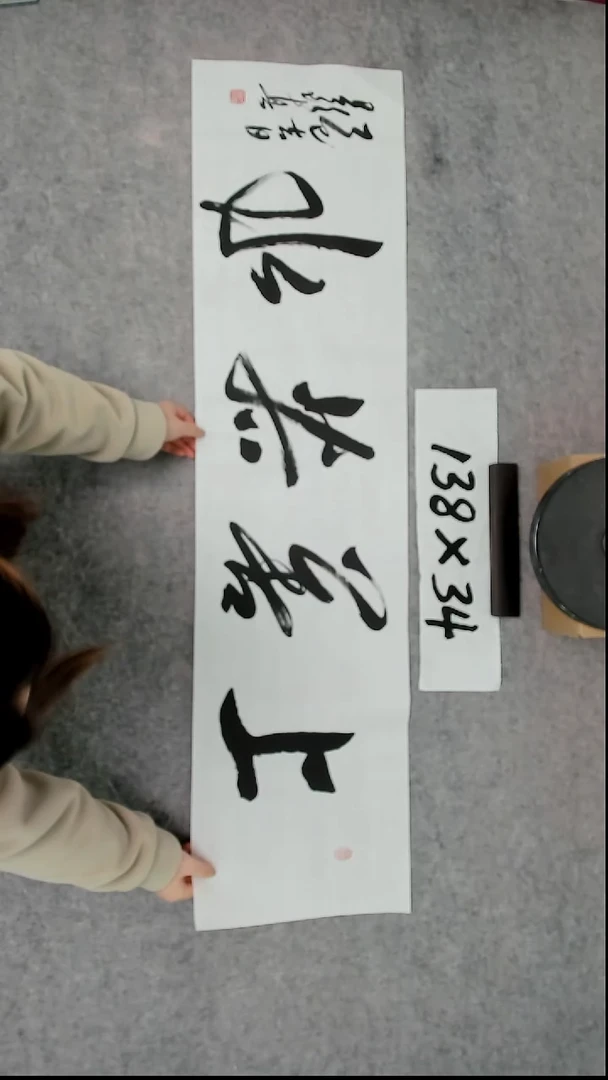 上善若水
138×34